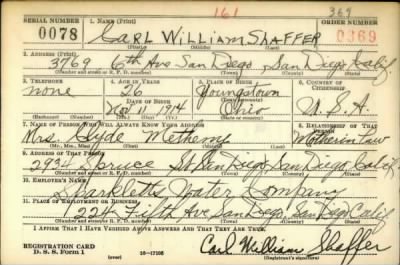 161 369
SERIAL NUMBER 1. NAME (Print) ORDER NUMBER
0078 CARL WILLIAM SHAFFER 0369
(First) (Middle) (Last)
2. ADDRESS (Print)
3769 6th Ave San Diego, San Diego, Calif.
(Number and street or R. F. D. number) (Town) (County) (State)
3. TELEPHONE 4. AGE IN YEARS 5. PLACE OF BIRTH 6. COUNTRY OF CITIZENSHIP
none 26 Youngstown
DATE OF BIRTH (Town or county)
Nov 11 1914 Ohio U.S.A.
(Exchange) (No.) (Mo.) (Day) (Yr.) (State or country)
7. NAME OF PERSON WHO WILL ALWAYS KNOW YOUR ADDRESS 8. RELATIONSHIP OF THAT PERSON
Mrs. Clyde Metheny Mother in law
(Mr., Mrs., Miss) (First) (Middle) (Last)
9. ADDRESS OF THAT PERSON
2934 Spruce St San Diego, San Diego, Calif.
(Number and street or R. F. D. number) (Town) (County) (State)
10. EMPLOYER'S NAME
Sparkletts Water Company
11. PLACE OF EMPLOYMENT OR BUSINESS
224 Fifth Ave San Diego, San Diego Calif
(Number and street or R. F. D. number) (Town) (County) (State)
I AFFIRM THAT I HAVE VERIFIED ABOVE ANSWERS AND THAT THEY ARE TRUE.
REGISTRATION CARD
D. S. S. Form 1 16-17105 Carl William Shaffer
(over) (Registrant's signature)